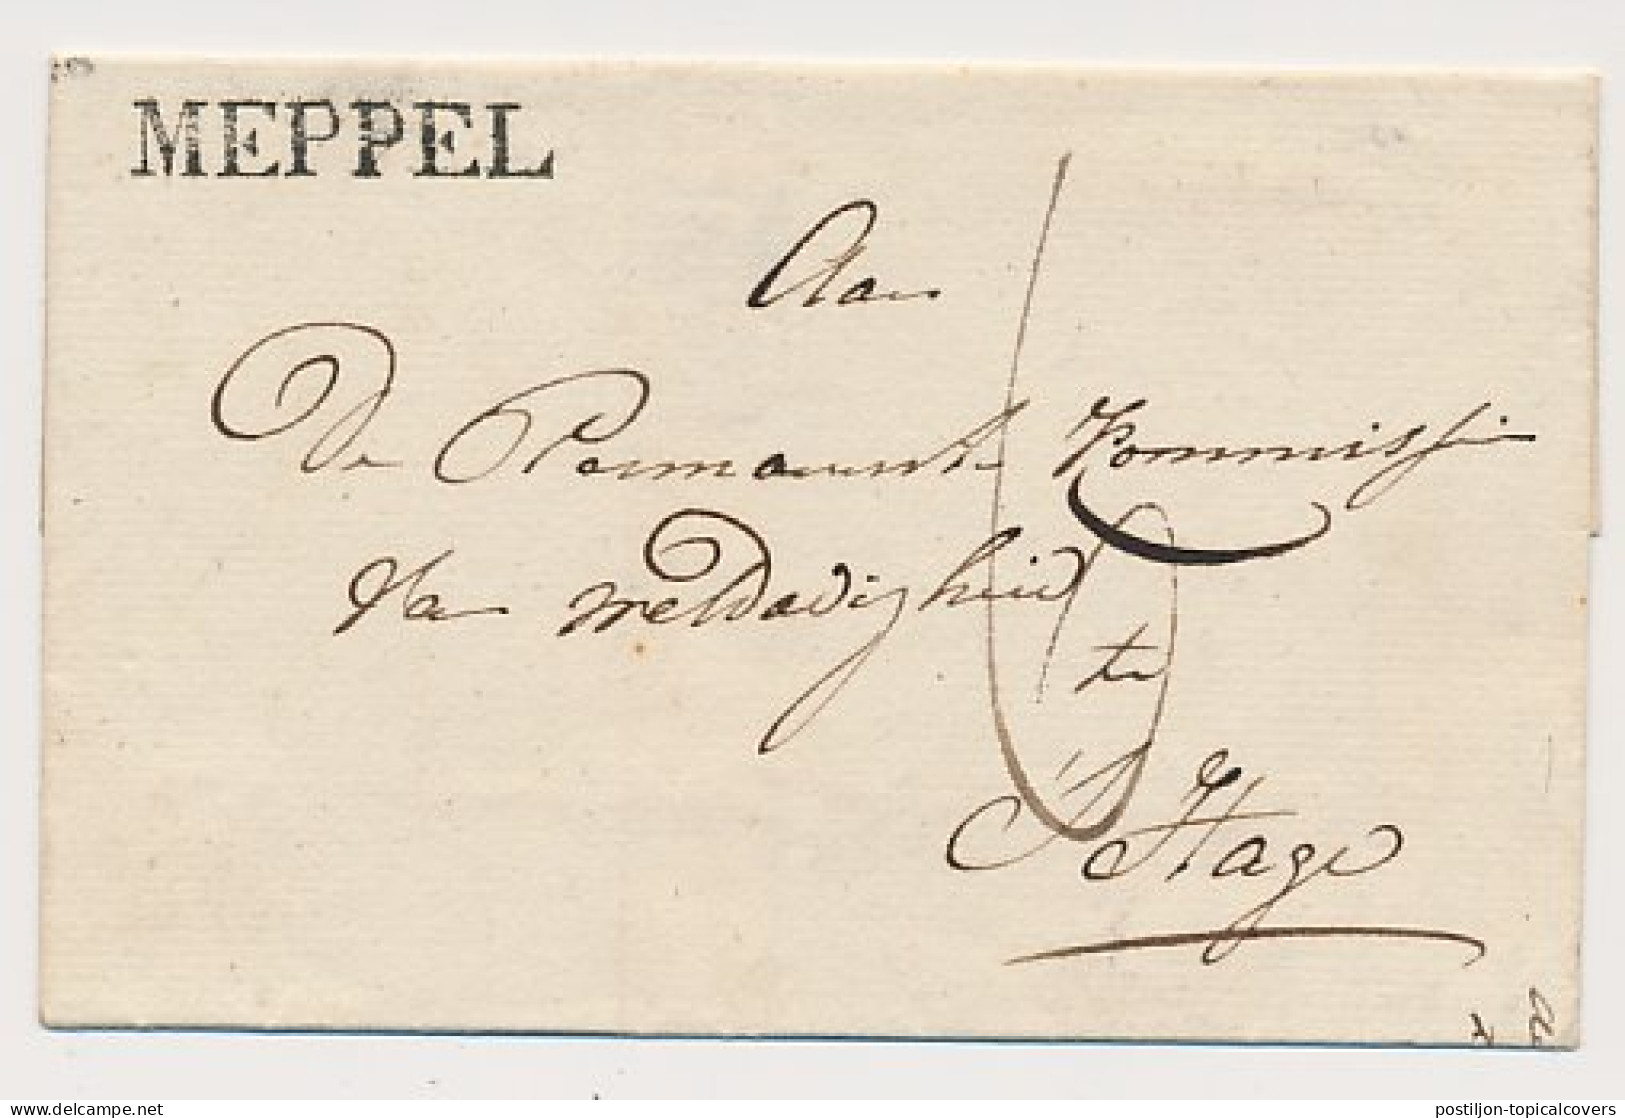 MEPPEL
Aan
De Permanente Kommissie
van weldadigheid
te
S'Hage
postiljon-topicalcovers
© Delcampe